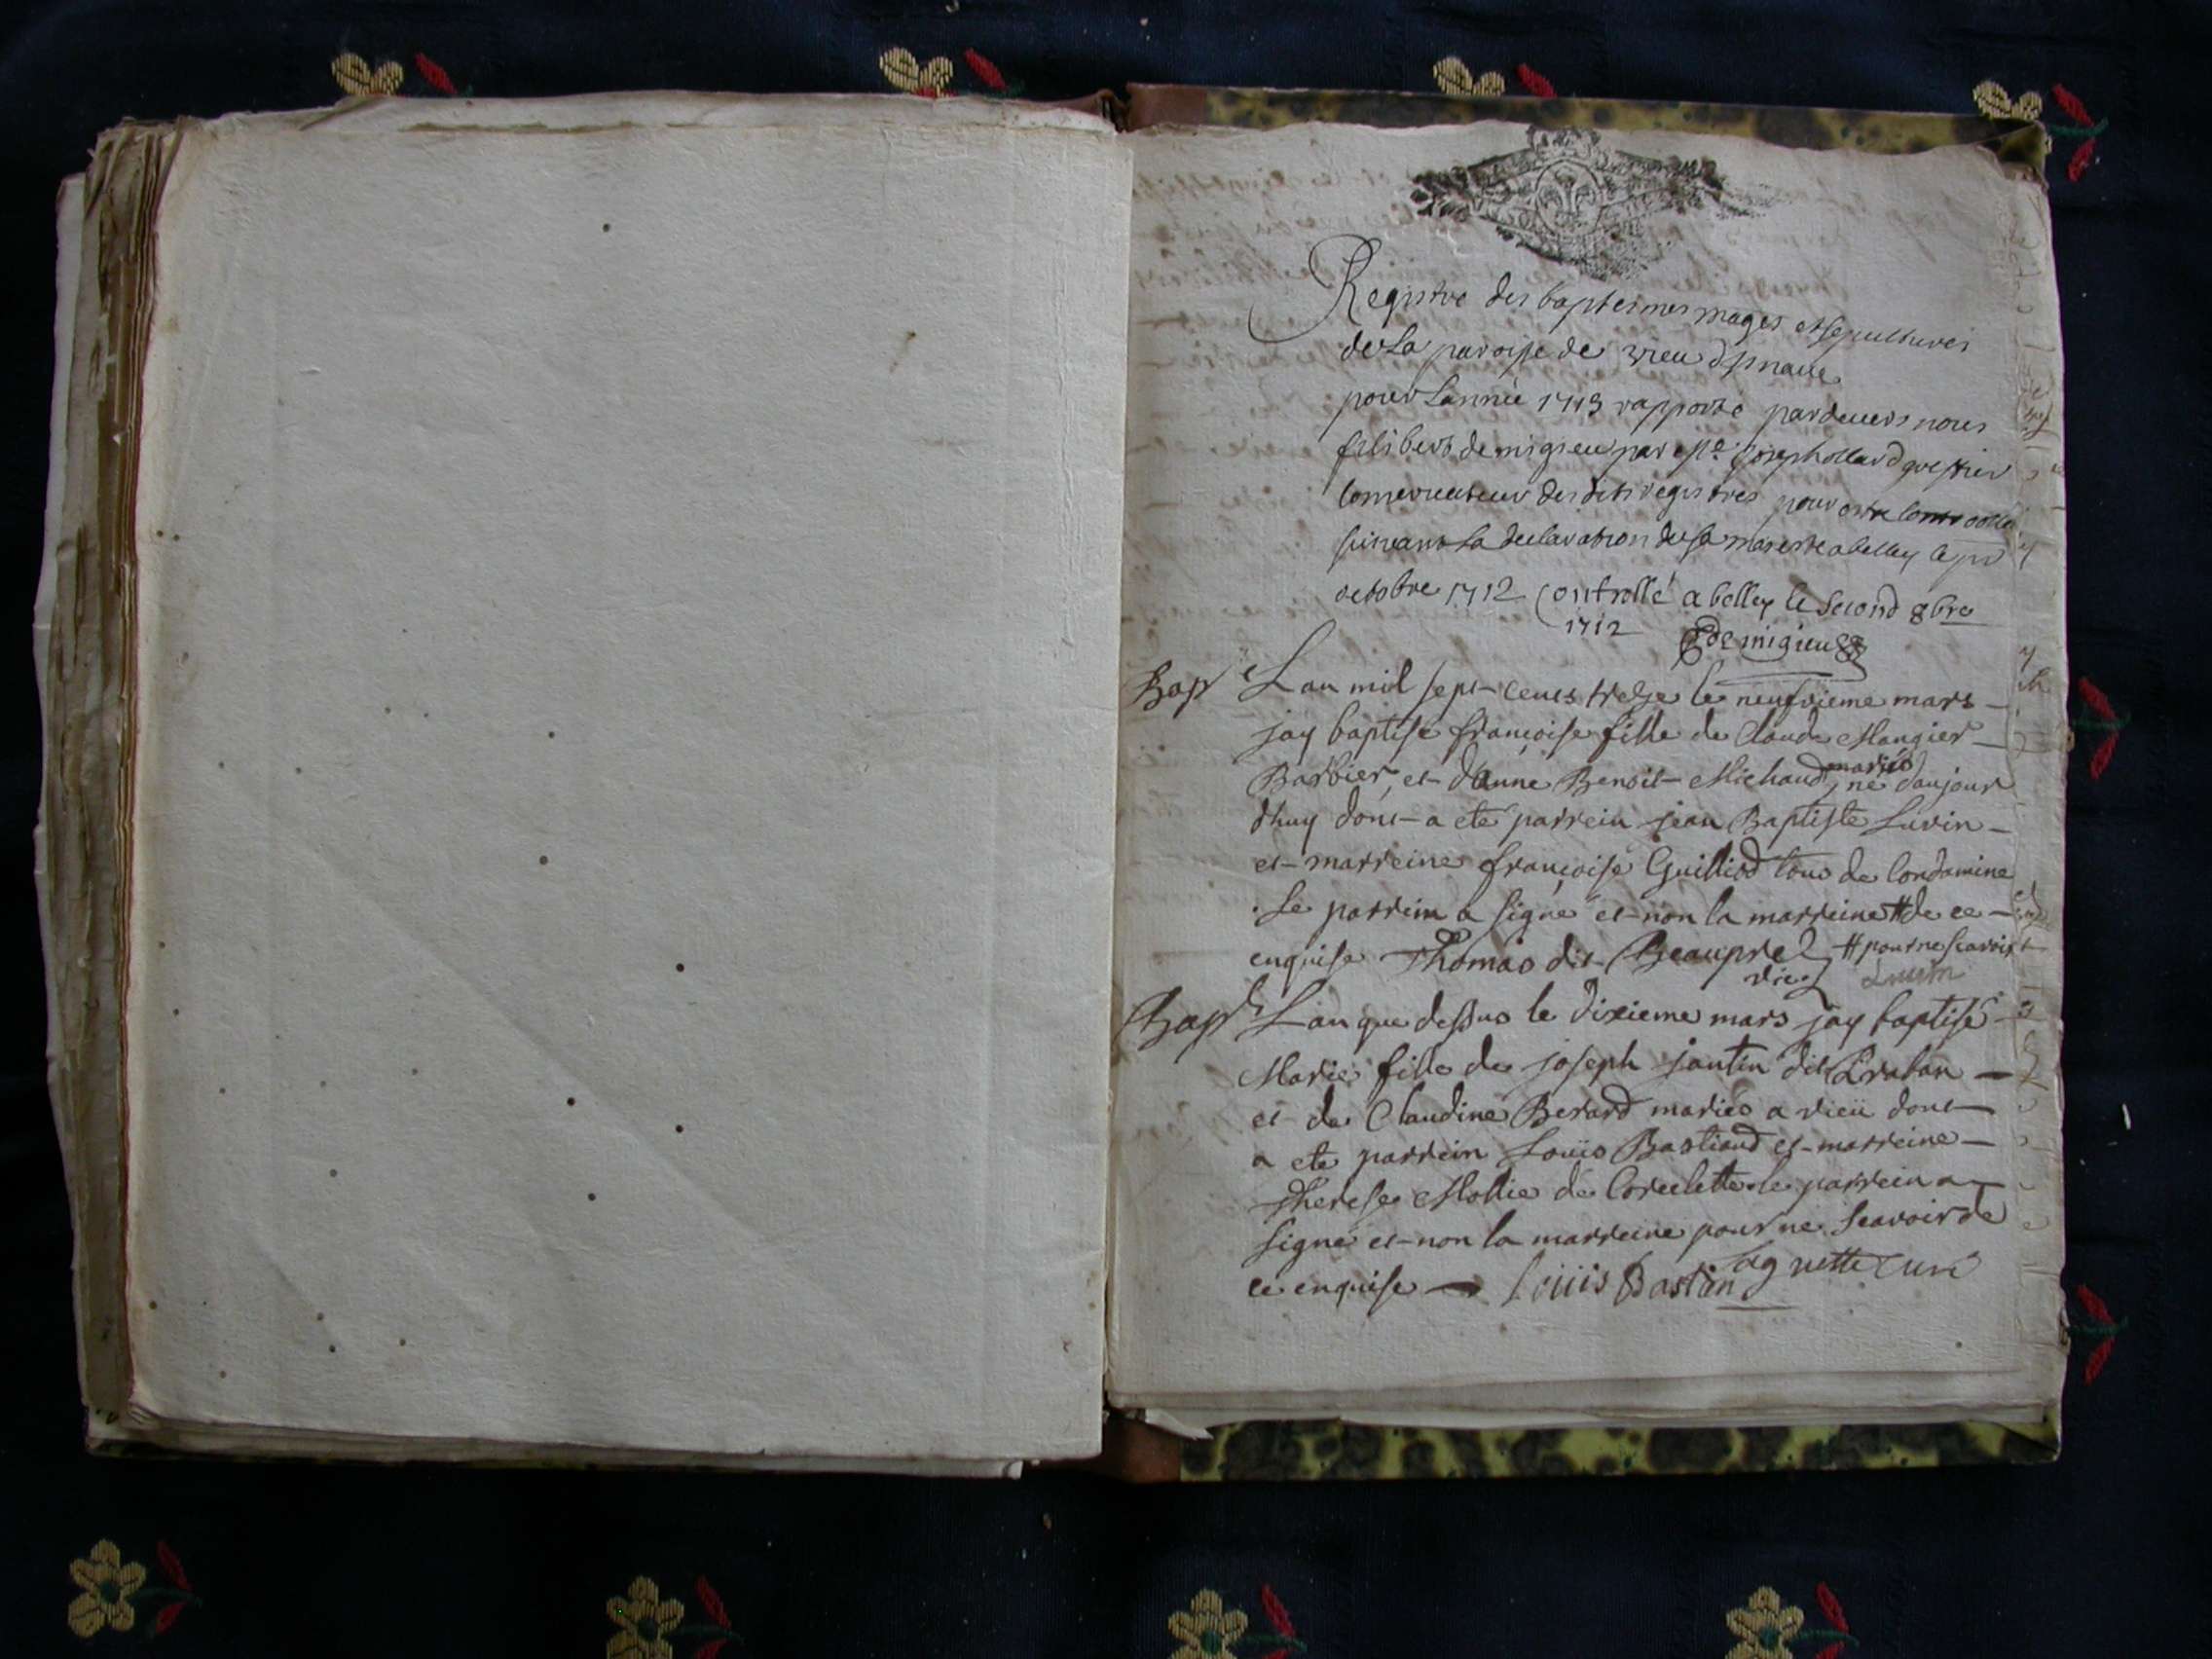 Registre des baptesmes mages et sepultures
de La paroisse de vieu d
pour Lannée 1713 rapporté pardevers nous
filibert de migieu par Me Joseph greffier
conservateur desdits registres pour estre controollé
suivant La declaration de sa majesté a belley le pr
octobre 1712 Controllé a belley le second 8bre
1712 de migieu
Bap Lan mil sept cents treize le neufvieme mars
jay baptisé francoise fille de Claude Mangier
Barbier, et danne Benoit Michaud mariés, né daujour
dhuy dont a eté parrein jean Baptiste Livin
et marreine francoise Guilliod tous de Condamine
Le parrein a signé et non la marreine # de ce
enquise Thomas dit Beaupré # pour ne scavoir
vic
Bap Lan que dessus le dixieme mars jay baptisé
Marie fille de joseph jantin dit
et de Claudine Berard mariés a vieü dont
a eté parrein Loüis Bastiand et marreine
Therese Mollie de Corcelette le parrein a
signé et non la marreine pour ne scavoir de
ce enquise Loüis Bastian curé